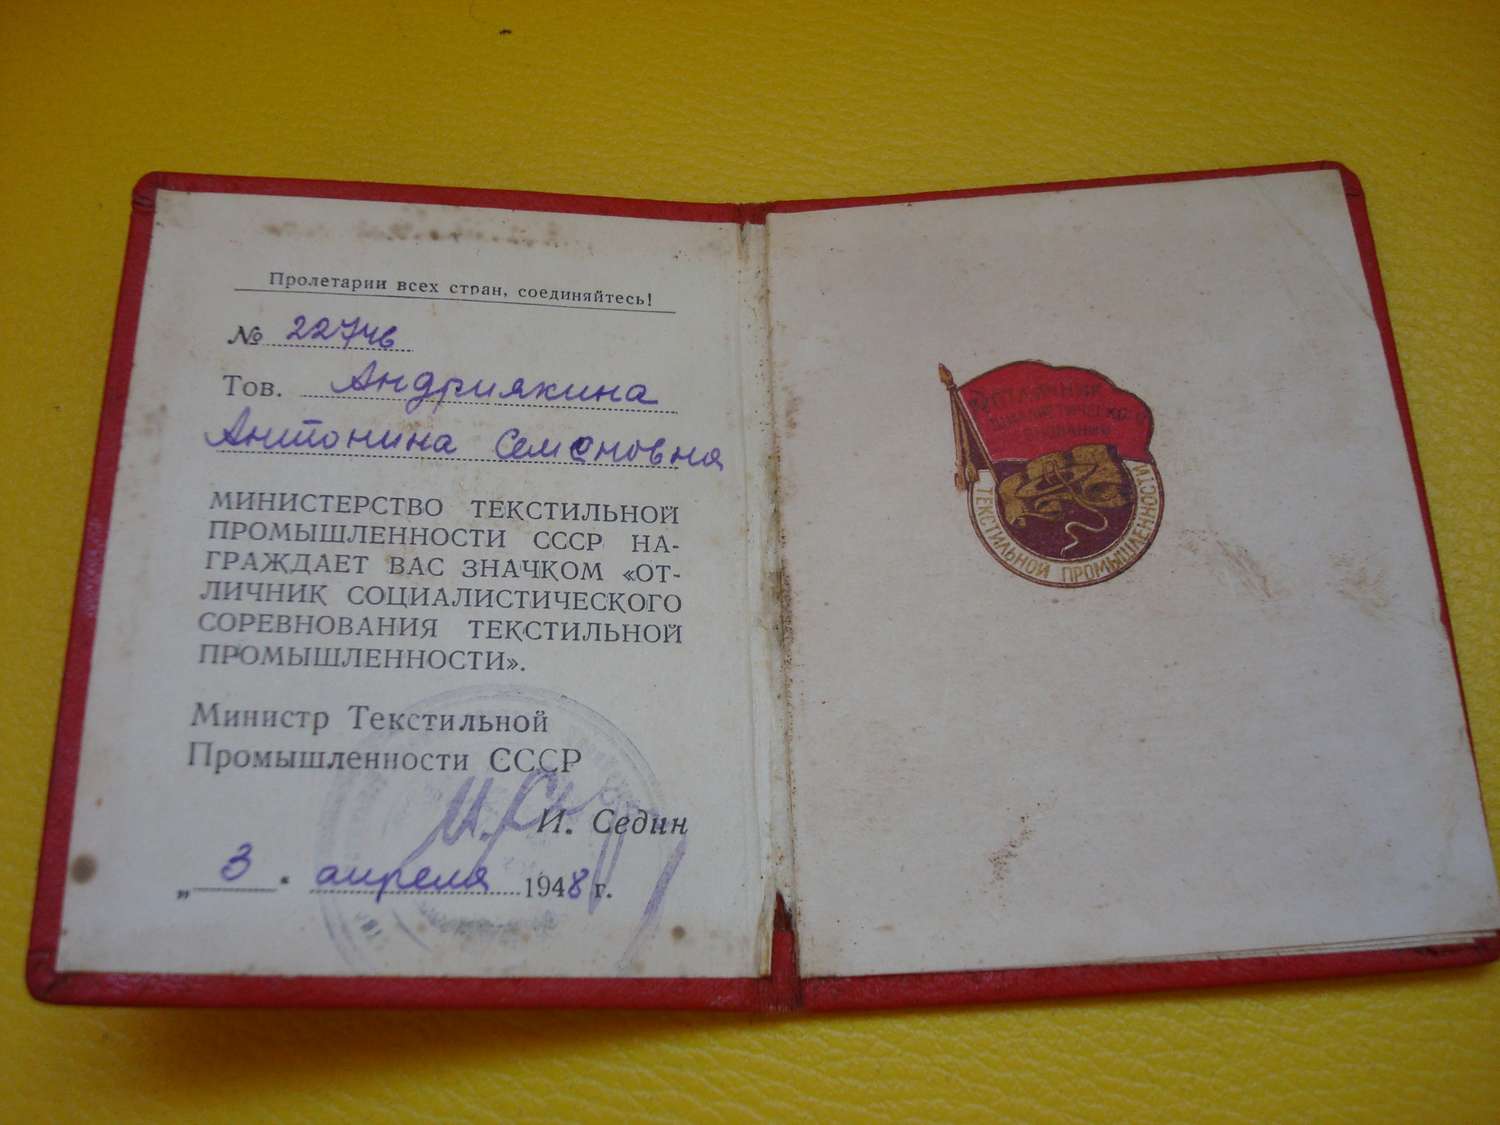 Пролетарии всех стран, соединяйтесь!
№ 22746
Тов. Андрияхина
Антонина Семеновня
МИНИСТЕРСТВО ТЕКСТИЛЬНОЙ
ПРОМЫШЛЕННОСТИ СССР НА-
ГРАЖДАЕТ ВАС ЗНАЧКОМ «ОТ-
ЛИЧНИК СОЦИАЛИСТИЧЕСКОГО
СОРЕВНОВАНИЯ ТЕКСТИЛЬНОЙ
ПРОМЫШЛЕННОСТИ».
Министр Текстильной
Промышленности СССР
И. Седин
„ 3 " апреля 1948 г.
ОТЛИЧНИК
СОЦИАЛИСТИЧЕСКОГО
СОРЕВНОВАНИЯ
ТЕКСТИЛЬНОЙ ПРОМЫШЛЕННОСТИ